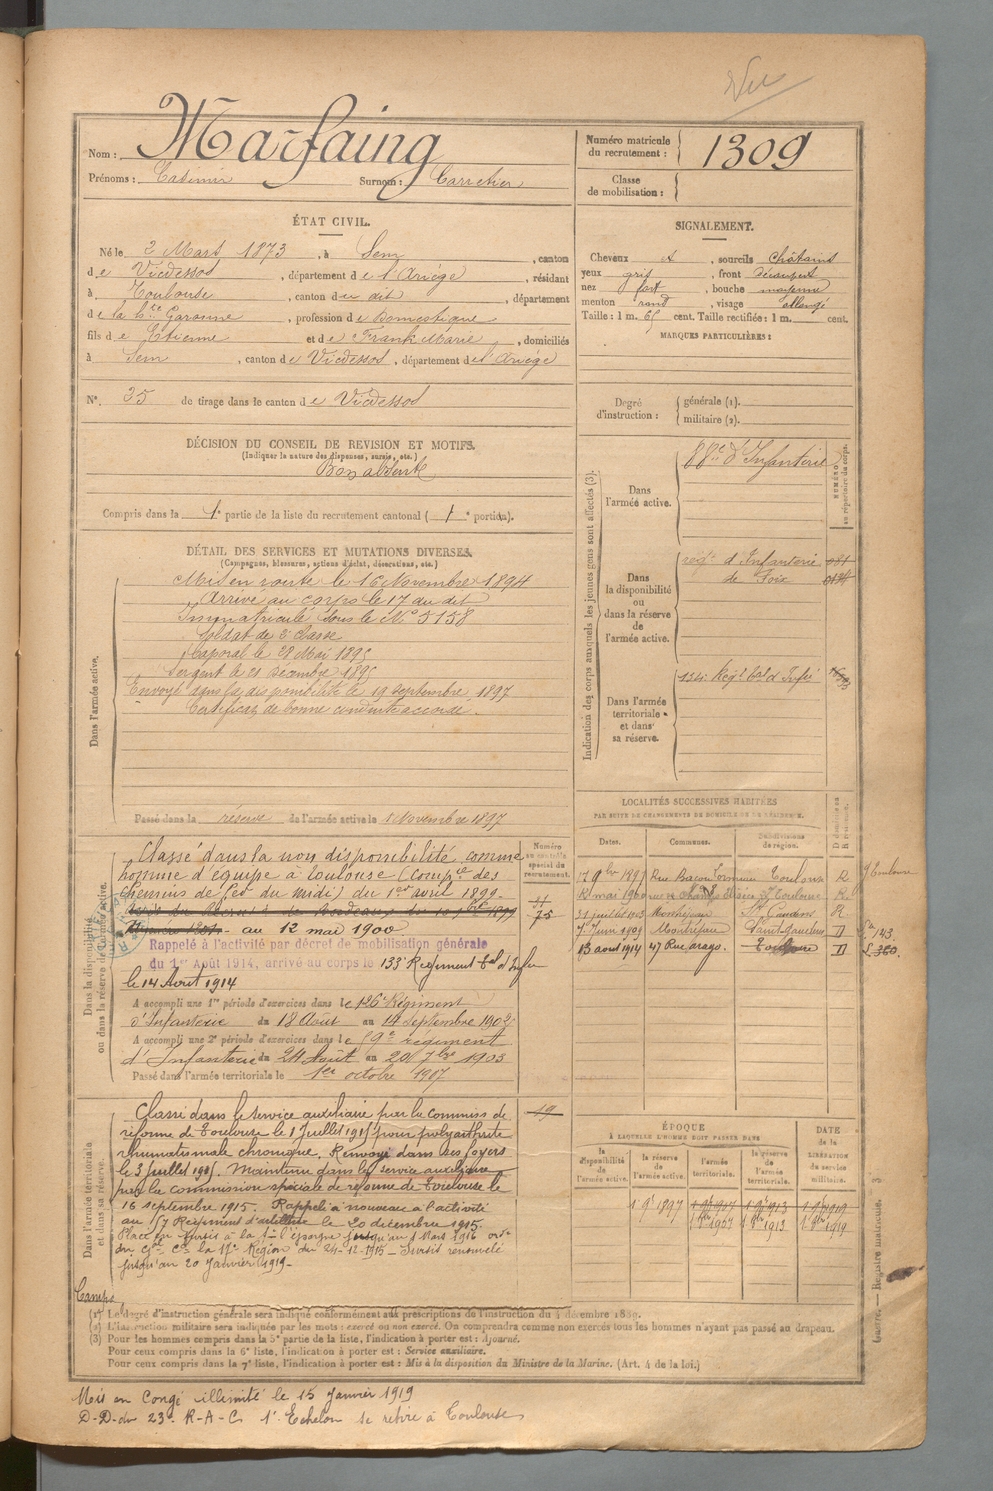 Vu
Nom : Marfaing
Prénoms : Casimir Surnom : Carretier
Numéro matricule du recrutement : 1309
Classe de mobilisation :
ÉTAT CIVIL.
Né le 2 Mars 1873, à Sem, canton
de Vicdessos, département de l'Ariège, résidant
à Toulouse, canton du dit, département
de la Hte Garonne, profession de Domestique
fils de Etienne et de Frank Marie, domiciliés
à Sem, canton de Vicdessos, département de l'Ariège
N° 35 de tirage dans le canton de Vicdessos
SIGNALEMENT.
Cheveux et, sourcils châtains
yeux gris, front découvert
nez fort, bouche moyenne
menton rond, visage allongé
Taille : 1 m. 65 cent. Taille rectifiée : 1 m. cent.
MARQUES PARTICULIÈRES :
Degré d'instruction : générale (1).
militaire (2).
DÉCISION DU CONSEIL DE REVISION ET MOTIFS.
(Indiquer la nature des dispenses, sursis, etc.)
Bon absent
Compris dans la 1e partie de la liste du recrutement cantonal (1e portion).
DÉTAIL DES SERVICES ET MUTATIONS DIVERSES.
(Campagnes, blessures, actions d'éclat, décorations, etc.)
Dans l'armée active.
Mis en route le 16 Novembre 1894
Arrivé au corps le 17 du dit
Immatriculé sous le N° 5158
Soldat de 2e classe
Caporal le 28 Mai 1895
Sergent le 21 Décembre 1895
Envoyé dans la disponibilité le 19 Septembre 1897
Certificat de bonne conduite accordé.
Passé dans la réserve de l'armée active le 1 Novembre 1897
Indication des corps auxquels les jeunes gens sont affectés (3).
Dans l'armée active.
88e d'Infanterie
NUMÉRO au répertoire du corps.
Dans la disponibilité ou dans la réserve de l'armée active.
régt d'Infanterie
de Foix
Dans l'armée territoriale et dans sa réserve.
134e Régt tal d'Infie
LOCALITÉS SUCCESSIVES HABITÉES
PAR SUITE DE CHANGEMENTS DE DOMICILE OU DE RÉSIDENCE.
Dates. Communes. Subdivisions de région. D domicile ou R résidence.
Toulouse R
2 mai 1900 Toulouse R
31 juillet 1903 Montréjeau St Gaudens R
7 Juin 1905 Montréjeau Saint Gaudens D
13 aout 1914 47 Rue Arago. Toulouse D
Dans la disponibilité ou dans la réserve de l'armée active.
Numéro au contrôle spécial du recrutement.
Classé dans la non disponibilité comme
homme d'équipe à Toulouse (Compie des
Chemins de fer du Midi) du 1er avril 1899
au 12 mai 1900
75
Rappelé à l'activité par décret de mobilisation générale
du 1er Août 1914, arrivé au corps le 133e Régiment tal d'Infie
le 14 Aout 1914
A accompli une 1re période d'exercices dans le 126e Régiment
d'Infanterie du 18 Août au 14 Septembre 1902
A accompli une 2e période d'exercices dans le 59e régiment
d'Infanterie du 24 Août au 20 7bre 1905
Passé dans l'armée territoriale le 1er octobre 1907
Dans l'armée territoriale et dans sa réserve.
19
Classé dans le service auxiliaire par la commiss de
réforme de Toulouse le 1 Juillet 1915 pour polyarthrite
rhumatismale chronique. Renvoyé dans ses foyers
le 3 Juillet 1915. Maintenu dans le service auxiliaire
par la commission spéciale de réforme de Toulouse le
16 septembre 1915. Rappelé à nouveau à l'activité
au 57 Régiment d'artillerie le 20 décembre 1915.
jusqu'au 1 Mars 1916
du Gal Ct la 17e Région du 24-12-1915 - Sursis renouvelé
jusqu'au 20 Janvier 1919-
ÉPOQUE
À LAQUELLE L'HOMME DOIT PASSER DANS
la disponibilité de l'armée active. la réserve de l'armée active. l'armée territoriale. la réserve de l'armée territoriale.
DATE de la LIBÉRATION du service militaire.
1 9e 1897 1 9e 1907 1 9e 1913 1 9e 1919
1 8bre 1907 1 8bre 1913 1 8bre 1919
Campe
(1) Le degré d'instruction générale sera indiqué conformément aux prescriptions de l'instruction du 4 décembre 1889.
(2) L'instruction militaire sera indiquée par les mots : exercé ou non exercé. On comprendra comme non exercés tous les hommes n'ayant pas passé au drapeau.
(3) Pour les hommes compris dans la 5e partie de la liste, l'indication à porter est : Ajourné.
Pour ceux compris dans la 6e liste, l'indication à porter est : Service auxiliaire.
Pour ceux compris dans la 7e liste, l'indication à porter est : Mis à la disposition du Ministre de la Marine. (Art. 4 de la loi.)
Guerre. — Registre matricule. — 3
Mis en Congé illimité le 15 Janvier 1919
D-D-du 23e R-A-C. 1er Echelon se retire à Toulouse